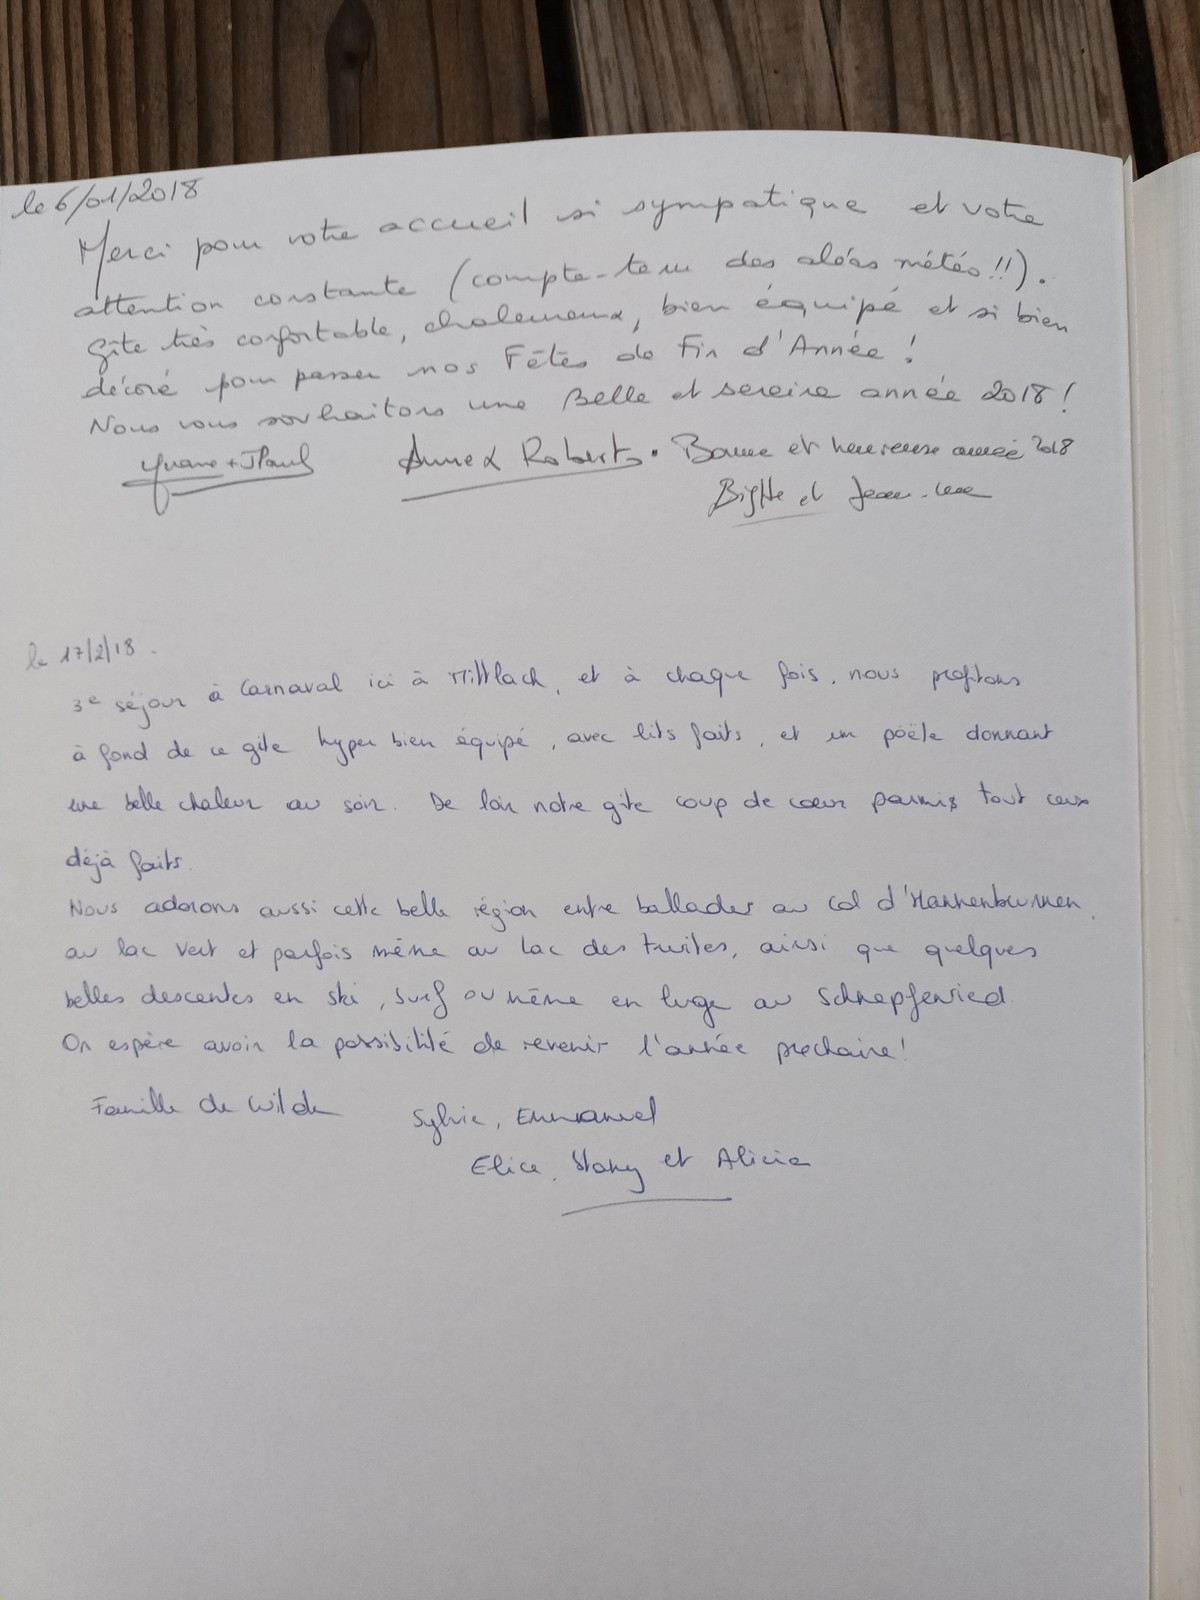 le 6/01/2018
Merci pour votre accueil si sympatique et votre
attention constante (compte-tenu des aléas météo!!).
Gîte très confortable, chaleureux, bien équipé et si bien
décoré pour passer nos Fêtes de Fin d'Année !
Nous vous souhaitons une Belle et sereine année 2018 !
Yvane + JPaul Anne & Robert. Bonne et heureuse année 2018
Bigitte et Jean-Luc
le 17/2/18.
3e séjour à Carnaval ici à Mittlach, et à chaque fois, nous profitons
à fond de ce gîte hyper bien équipé, avec lits faits, et un poële donnant
une belle chaleur au soir. De loin notre gîte coup de coeur parmis tout ceux
déjà faits.
Nous adorons aussi cette belle région entre ballades au col d'Hannenbrunnen,
au lac vert et parfois même au lac des truites, ainsi que quelques
belles descentes en ski, surf ou même en luge au Schnepfenried.
On espère avoir la possibilité de revenir l'année prochaine!
Famille de Wilde Sylvie, Emmanuel
Elice, Stany et Alicia